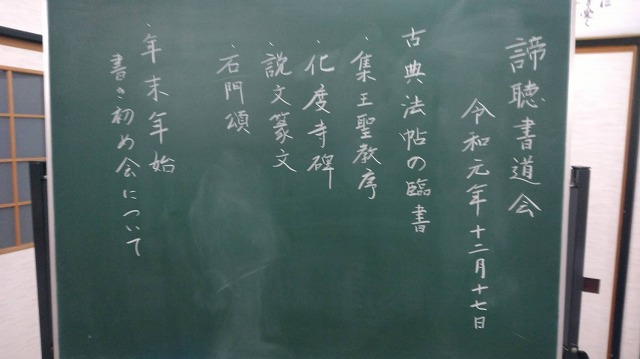 諦聴書道会
令和元年十二月十七日
古典法帖の臨書
・集王聖教序
・化度寺碑
・説文篆文
・石門頌
・年末年始
書き初め会について